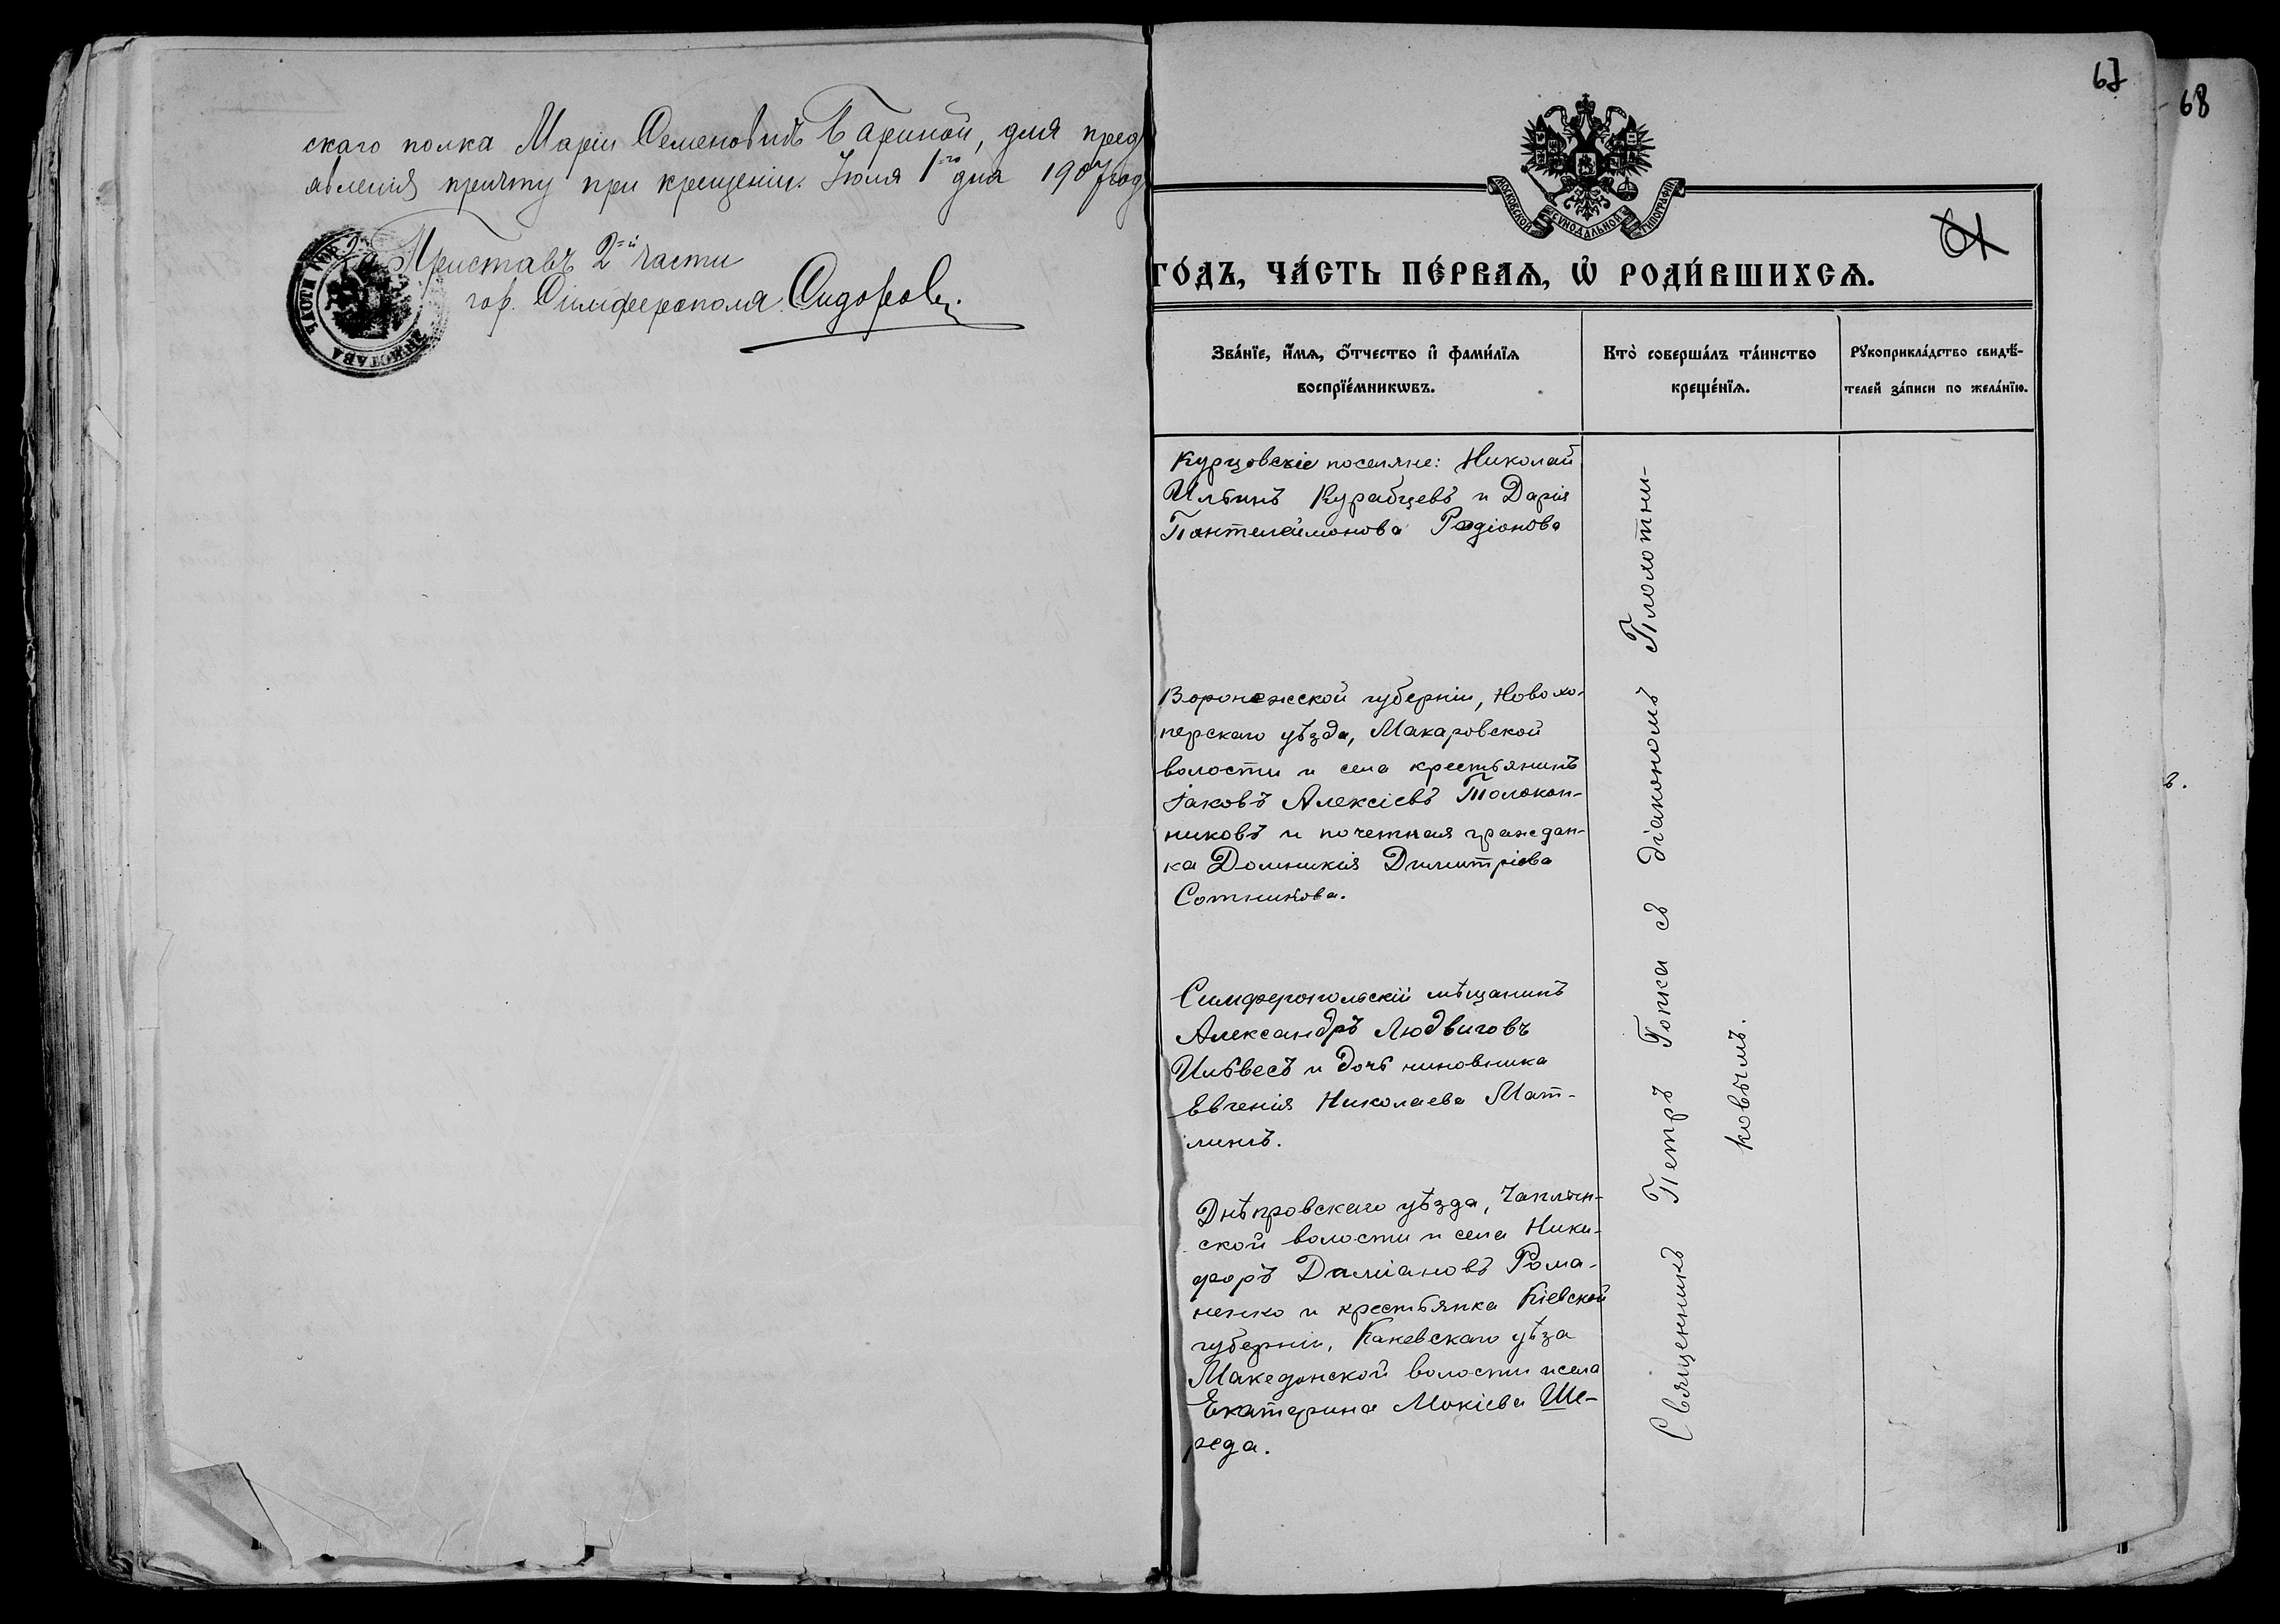 скаго полка Маріи Семеновнѣ Бариной, для пред
явленія причту при крещеніи. Іюля 1го дня 1907 год
Приставъ 2й части
гор. Симферополя Сидоровъ.
67
68
МОСКОВСКОЙ СѴНОДАЛЬНОЙ ТИПОГРАФІИ
ГО́ДЪ, ЧА́СТЬ ПЕ́РВАѦ, Ѡ҆ РОДИ́ВШИХСѦ.
Зва́нїе, и҆́мѧ, ѻ҆́тчество и҆ фами́лїѧ
воспрїе́мникѡвъ.
Кто̀ соверша́лъ та́инство
креще́нїѧ.
Рꙋкоприкла́дство свидѣ́-
телей за́писи по жела́нїю.
Курцовскіе поселяне: Николай
Ильинъ Курабцевъ и Дарія
Пантелаймонова Радіонова
Воронежской губерніи, Новохо-
перскаго уѣзда, Макаровской
волости и села крестьянинъ
Іаковъ Алексіевъ Толокон-
никовъ и почетная граждан-
ка Домникія Димитріева
Сотникова.
Симферопольскій мѣщанинъ
Александръ Людвиговъ
Ильвесъ и дочь чиновника
Евгенія Николаева Мат-
линъ.
Днѣпровскаго уѣзда, Чаплин-
ской волости и села Ники-
форъ Даміановъ Рома-
ненко и крестьянка Кіевской
губерніи, Каневскаго уѣза
Македонской волости и села
Екатерина Мокіева Ше-
реда.
Священникъ Петръ Попка съ діакономъ Плотни-
ковымъ.
в.